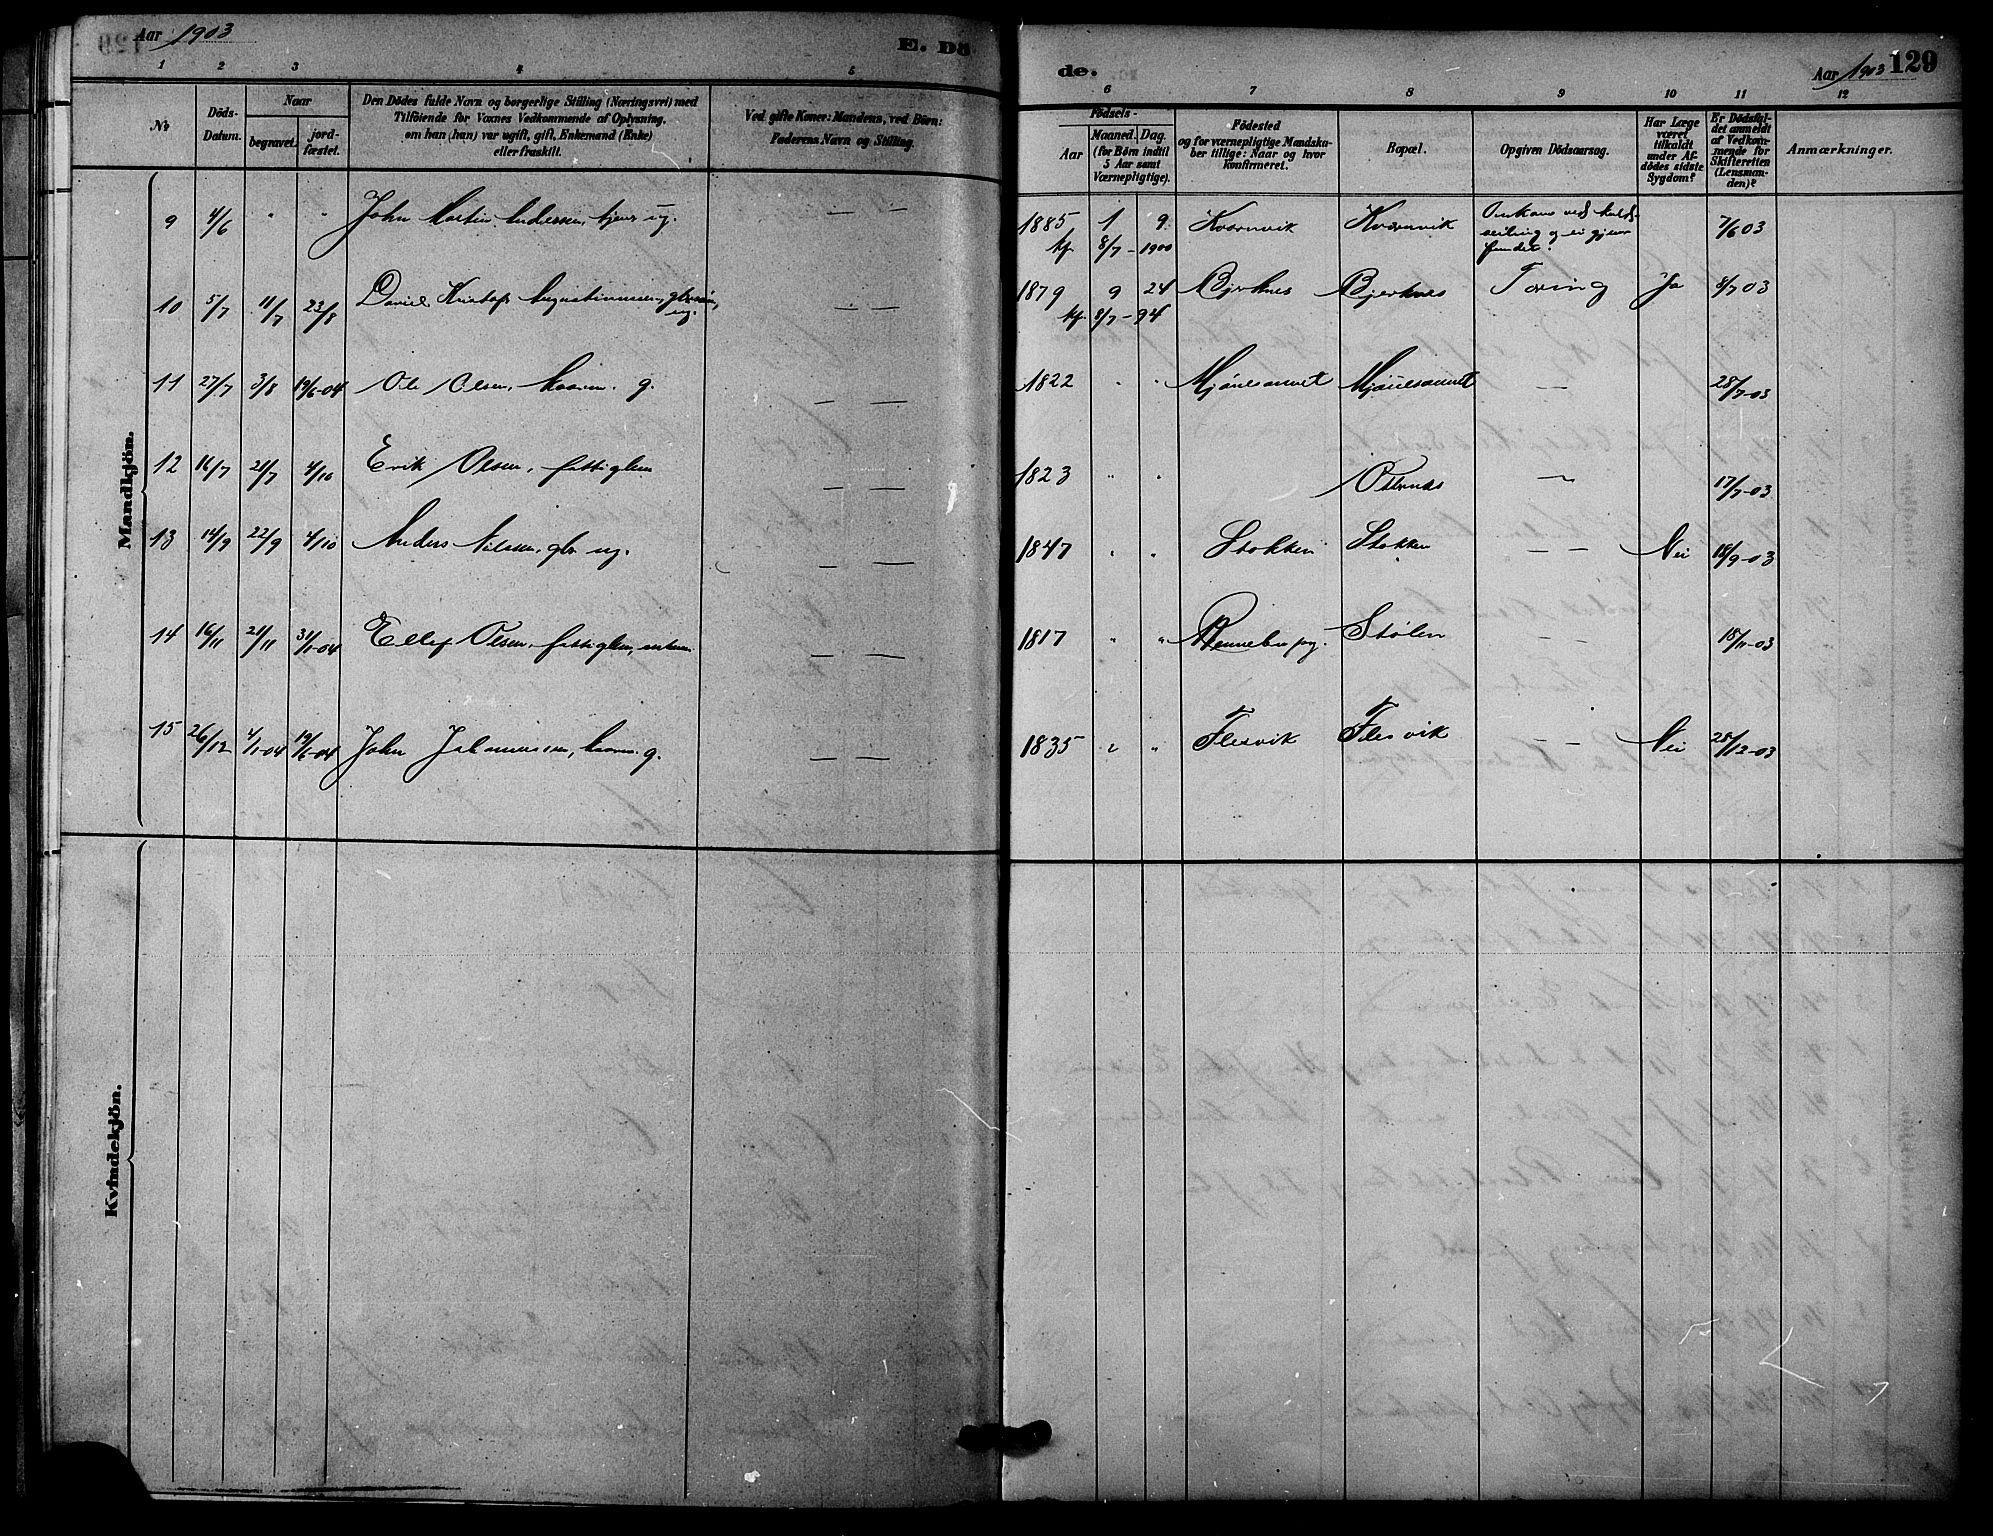 Aar 1903
E. Dö
de.
Aar 1903 129
1 2 3 4 5 6 7 8 9 10 11 12
No
Döds-
Datum.
Naar
begravet.
jord-
fæstet.
Den Dödes fulde Navn og borgerlige Stilling (Næringsvei) med
Tilföiende for Voxnes Vedkommende af Oplysning,
om han (hun) var ugift, gift, Enkemand (Enke)
eller fraskilt.
Ved gifte Koner: Mandens, ved Börn:
Faderens Navn og Stilling.
Födsels-
Aar
Maaned. Dag.
(for Börn indtil
5 Aar samt
Værnepligtige).
Födested
og for værnepligtige Mandska-
ber tillige: Naar og hvor
konfirmeret.
Bopæl.
Opgiven Dödsaarsag.
Har Læge
været
tilkaldt
under Af-
dödes sidste
Sygdom?
Er Dödsfal-
det anmeldt
af Vedkom-
mende for
Skifteretten
(Lensman-
den)?
Anmærkninger.
Mandkjön.
9 4/6 " " John Martin Andersen, tjener ug. — — 1885 1 9 Kvarnvik Kvarnvik Omkom ved kuld-
seiling og ei gjen-
fundet. 7/6 03
kf. 8/7 - 1900
10 5/7 11/7 23/8 Daniel Kristofr Augustinussen, gbrsøn,
ug. — — 1879 9 24 Bjerknes Bjerknes Tæring Ja 8/7 03
kf. 8/7 - 94
11 27/7 3/8 19/6-04 Ole Olsen, kaarm. g. — — 1822 " " Mjønesaunet Mjønesaunet — 28/7-03
12 16/7 21/7 4/10 Erik Olsen, fattiglem — — 1823 " " Odernæs — 17/7-03
13 14/9 22/9 4/10 Anders Nilssen, gbr ug. — — 1847 " " Stokken Stokken — — Nei 18/9-03
14 16/11 21/11 31/1-04 Ellef Olsen, fattiglem, enkem. — — 1817 " " Rennebu pg. Stølen — — 18/11-03
15 26/12 4/1-04 19/6-04 John Johannessen, kaarm. g. — — 1835 " " Flesvik Flesvik — — Nei 28/12-03
Kvindekjön.